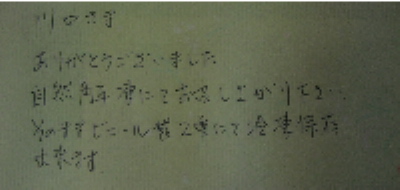 ありがとうございました
自然解凍にてお召し上がり下さい
そのままビニール袋2重にて冷凍保存
出来ます